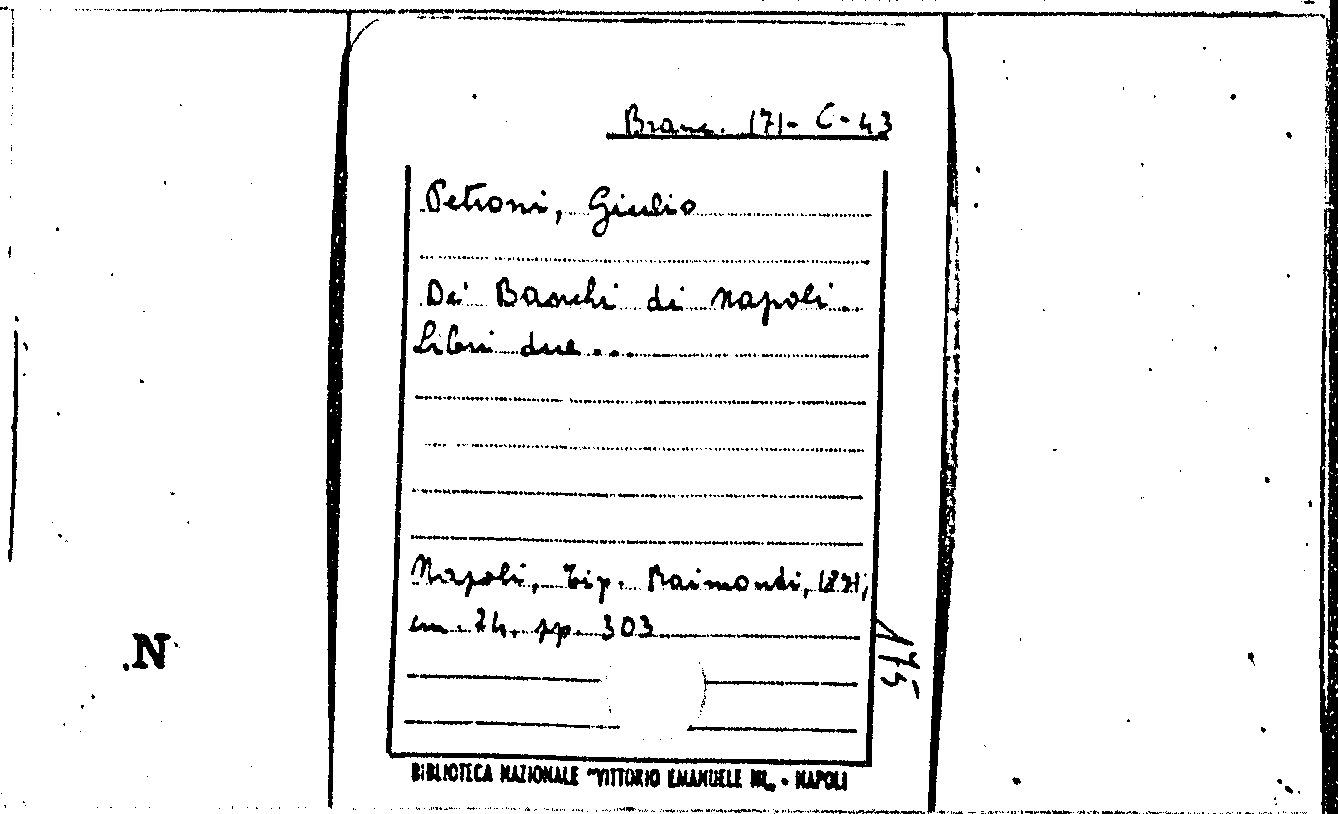 Branc. 171- C- 43
Petroni, Giulio
Dei Banchi di Napoli.
Libri due...
Napoli, Tip. Raimondi, 1871,
cm. 24. pp. 303
N
BIBLIOTECA NAZIONALE "VITTORIO EMANUELE III„ - NAPOLI